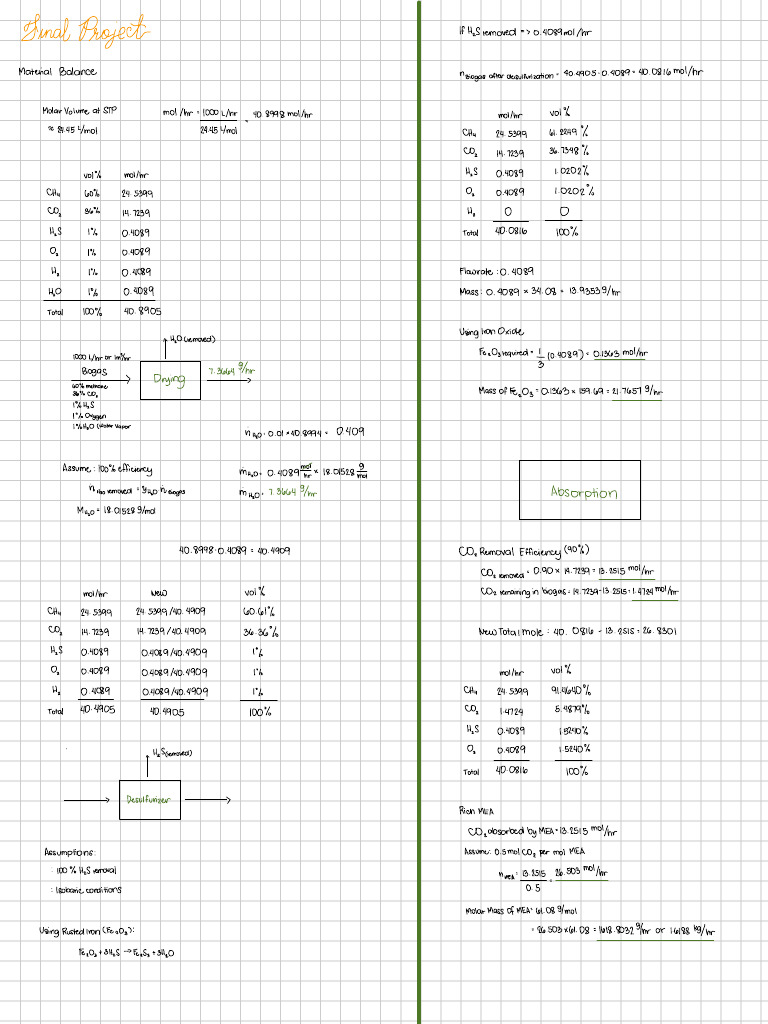 Final Project
Material Balance
Molar Volume at STP
≈ 24.45 L/mol
mol/hr = 1000 L/hr / 24.45 L/mol = 40.8998 mol/hr
vol% mol/hr
CH₄ 60% 24.5399
CO₂ 36% 14.7239
H₂S 1% 0.4089
O₂ 1% 0.4089
H₂ 1% 0.4089
H₂O 1% 0.4089
Total 100% 40.8905
H₂O (removed)
1000 L/hr or 1m³/hr
Biogas
60% methane
36% CO₂
1% H₂S
1% Oxygen
1% H₂O (Water Vapor
Drying
7.3664 g/hr
n H₂O = 0.01 × 40.8994 = 0.409
Assume: 100% efficiency
n H₂O removed = y H₂O n Biogas
M H₂O = 18.01528 g/mol
m H₂O = 0.4089 mol/hr × 18.01528 g/mol
m H₂O = 7.3664 g/hr
40.8998 - 0.4089 = 40.4909
mol/hr New vol%
CH₄ 24.5399 24.5399/40.4909 60.61%
CO₂ 14.7239 14.7239/40.4909 36.36%
H₂S 0.4089 0.4089/40.4909 1%
O₂ 0.4089 0.4089/40.4909 1%
H₂ 0.4089 0.4089/40.4909 1%
Total 40.4905 40.4905 100%
H₂S (removed)
Desulfurizer
Assumptions:
: 100% H₂S removal
: Isobaric conditions
Using Rusted Iron (Fe₂O₃):
Fe₂O₃ + 3H₂S → Fe₂S₃ + 3H₂O
If H₂S removed => 0.4089 mol/hr
n Biogas after desulfurization = 40.4905 - 0.4089 = 40.0816 mol/hr
mol/hr vol%
CH₄ 24.5399 61.2249%
CO₂ 14.7239 36.7348%
H₂S 0.4089 1.0202%
O₂ 0.4089 1.0202%
H₂ 0 0
Total 40.0816 100%
Flowrate: 0.4089
Mass: 0.4089 × 34.08 = 13.9353 g/hr
Using Iron Oxide
Fe₂O₃ required = 1/3 (0.4089) = 0.1363 mol/hr
Mass of Fe₂O₃ = 0.1363 × 159.69 = 21.7657 g/hr
Absorption
CO₂ Removal Efficiency (90%)
CO₂ removed = 0.90 × 14.7239 = 13.2515 mol/hr
CO₂ remaining in biogas = 14.7239 - 13.2515 = 1.4724 mol/hr
New Total mole: 40.0816 - 13.2515 = 26.8301
mol/hr vol%
CH₄ 24.5399 91.4640%
CO₂ 1.4724 5.4879%
H₂S 0.4089 1.5240%
O₂ 0.4089 1.5240%
Total 40.0816 100%
Rich MEA
CO₂ absorbed by MEA = 13.2515 mol/hr
Assume: 0.5 mol CO₂ per mol MEA
n MEA = 13.2515 / 0.5 = 26.503 mol/hr
Molar Mass of MEA = 61.08 g/mol
= 26.503 × 61.08 = 1618.8032 g/hr or 1.6188 kg/hr